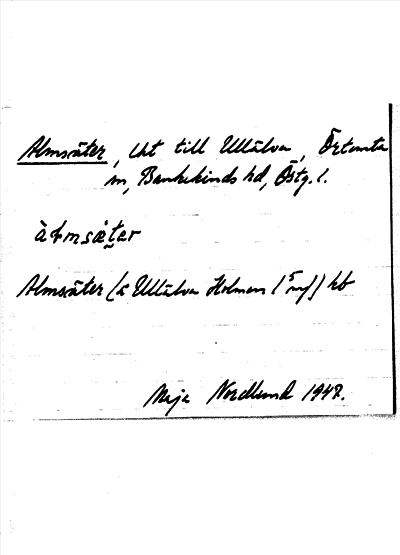 Almsäter, Lht till Ullälva, Örtomta
sn, Bankekinds hd, Östg. l.
àɬmsæ̀ter
Almsäter (å Ullälva Holmen 1/5 mf) hb
Maja Nordlund 1947.